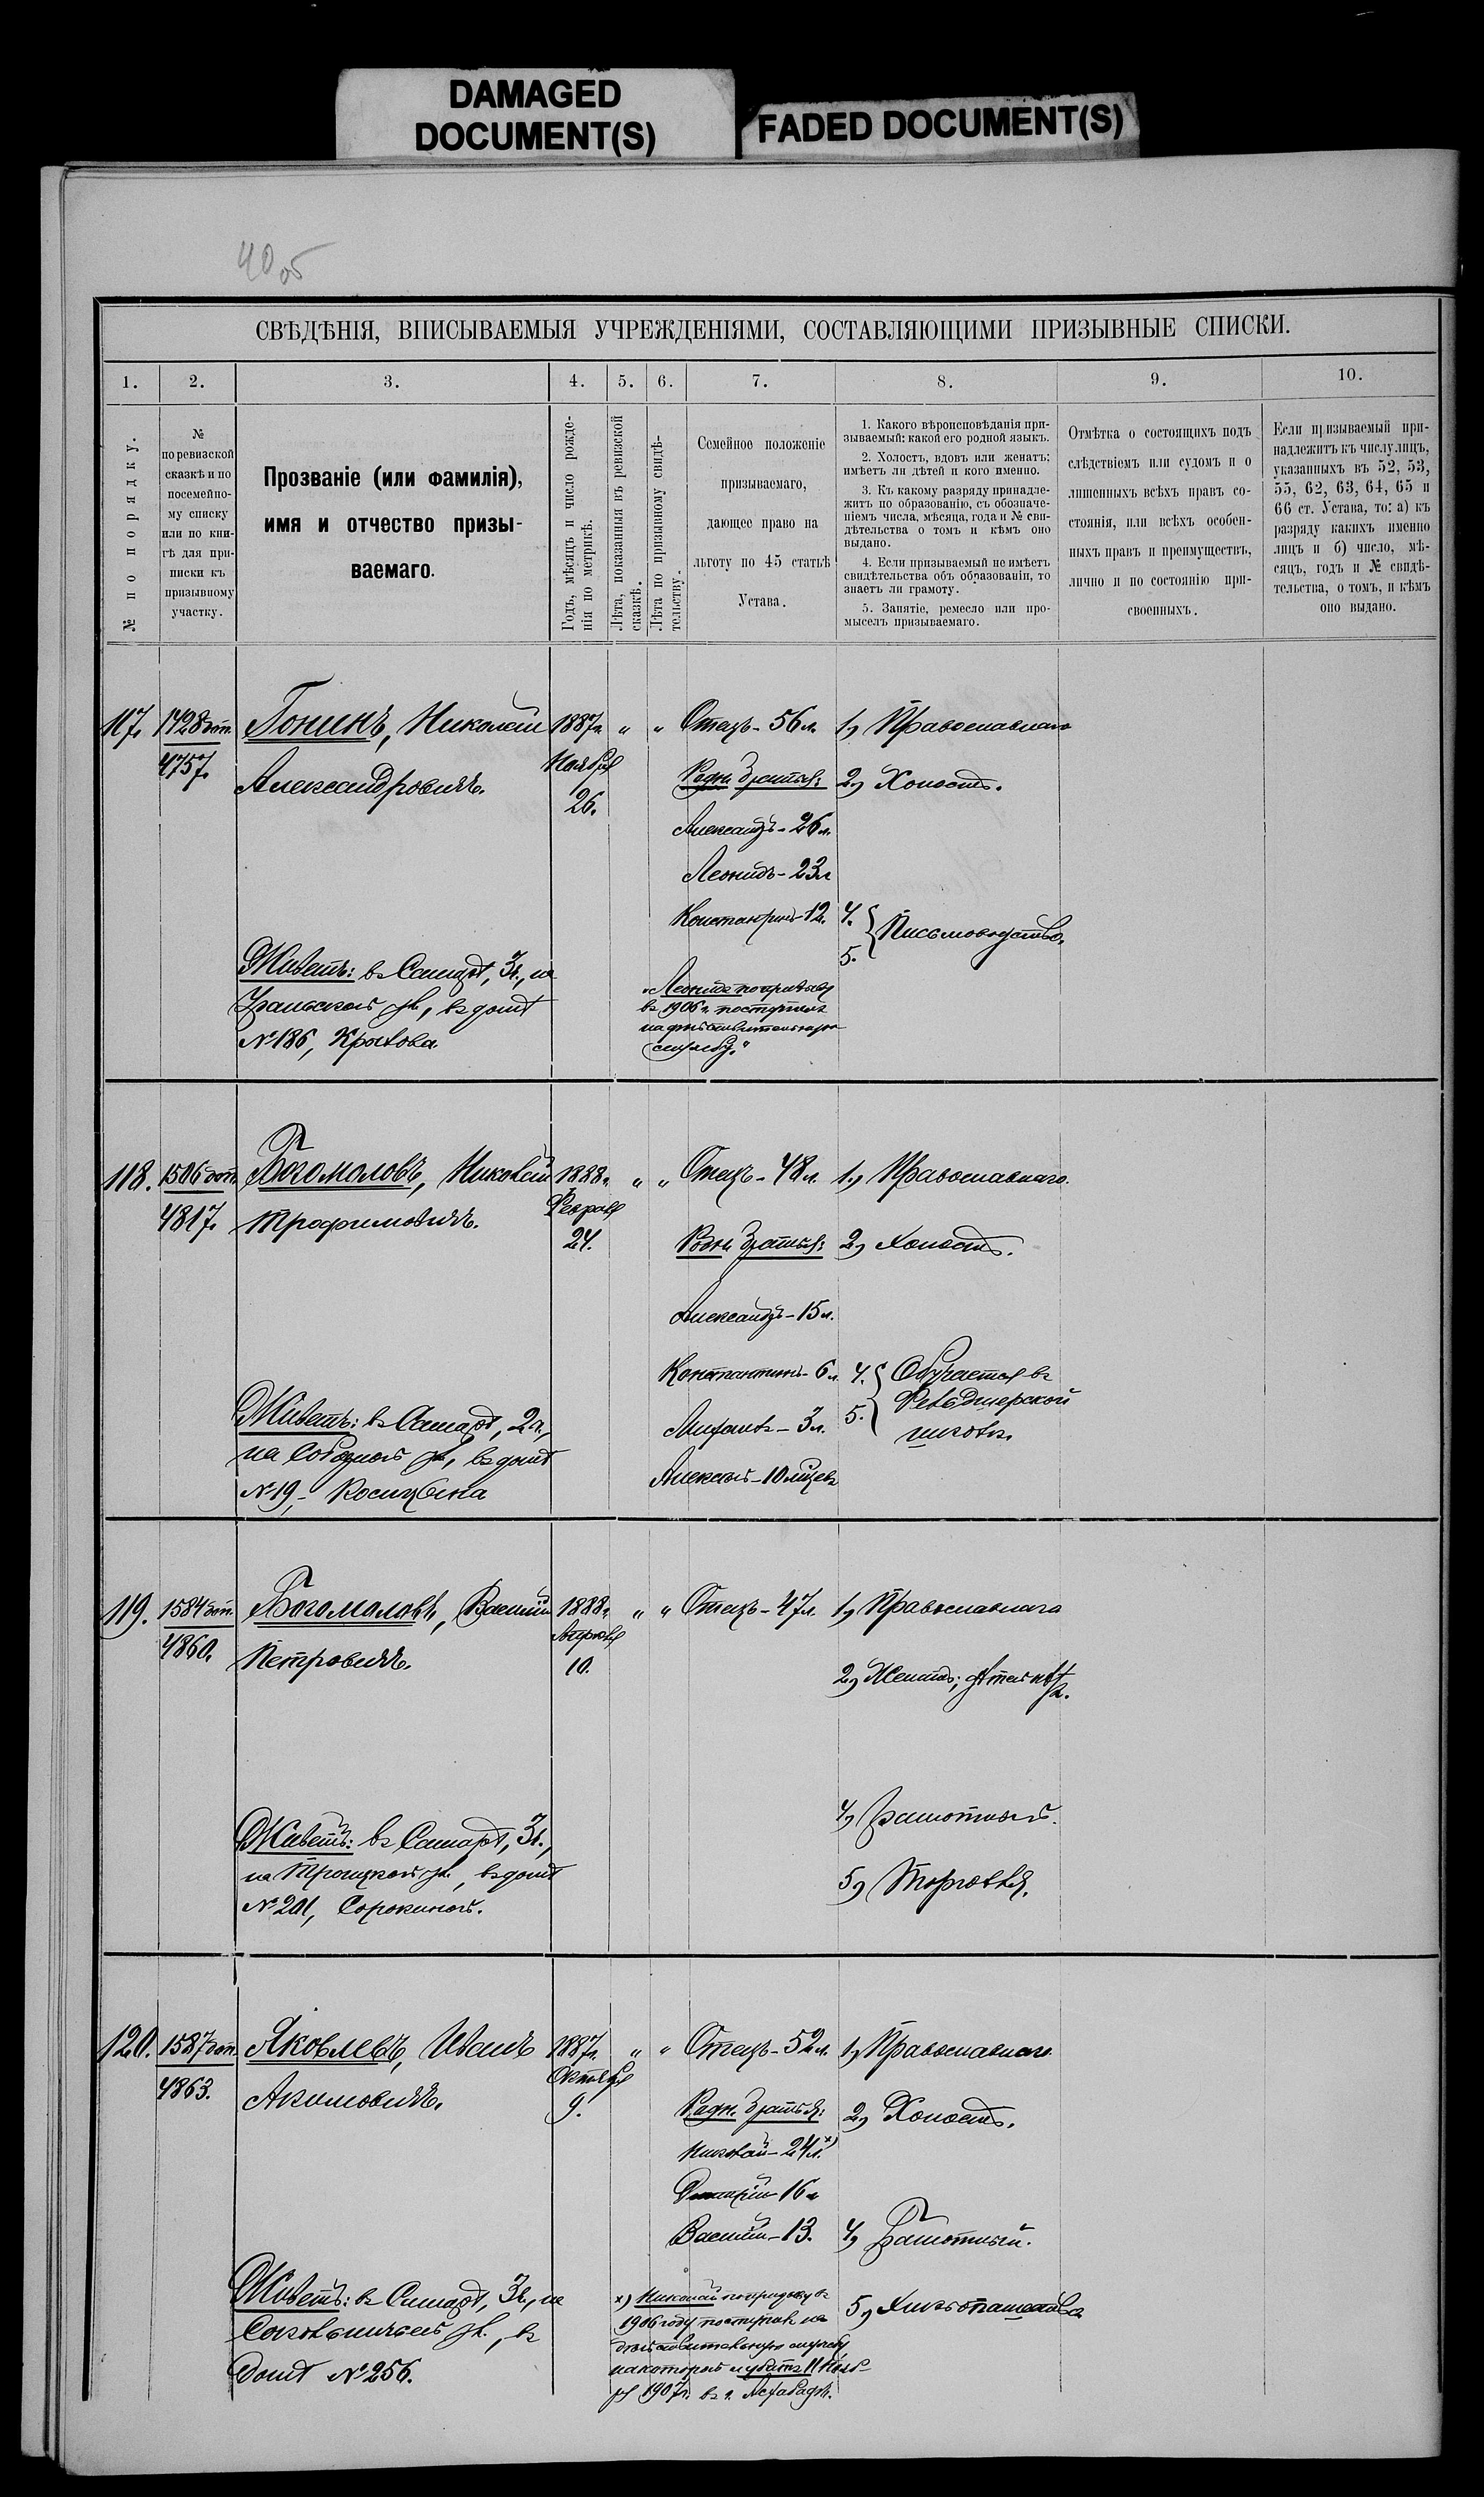 DAMAGED
DOCUMENT(S)
FADED DOCUMENT(S)
40 об
СВѢДѢНІЯ, ВПИСЫВАЕМЫЯ УЧРЕЖДЕНІЯМИ, СОСТАВЛЯЮЩИМИ ПРИЗЫВНЫЕ СПИСКИ.
1.
2.
3.
4.
5.
6.
7.
8.
9.
10.
№ по порядку.
№
по ревизской
сказкѣ и по
посемейно-
му списку
или по кни-
гѣ для при-
писки къ
призывному
участку.
Прозваніе (или фамилія),
имя и отчество призы-
ваемаго.
Годъ, мѣсяцъ и число рожде-
нія по метрикѣ.
Лѣта, показанныя въ ревизской
сказкѣ.
Лѣта по призывному свидѣ-
тельству.
Семейное положеніе
призываемаго,
дающее право на
льготу по 45 статьѣ
Устава.
1. Какого вѣроисповѣданія при-
зываемый: какой его родной языкъ.
2. Холостъ, вдовъ или женатъ:
имѣетъ ли дѣтей и кого именно.
3. Къ какому разряду принадле-
житъ по образованію, съ обозначе-
ніемъ числа, мѣсяца, года и № сви-
дѣтельства о томъ и кѣмъ оно
выдано.
4. Если призываемый не имѣетъ
свидѣтельства объ образованіи, то
знаетъ ли грамоту.
5. Занятіе, ремесло или про-
мыселъ призываемаго.
Отмѣтка о состоящихъ подъ
слѣдствіемъ или судомъ и о
лишенныхъ всѣхъ правъ со-
стоянія, или всѣхъ особен-
ныхъ правъ и преимуществъ,
лично и по состоянію при-
своенныхъ.
Если призываемый при-
надлежитъ къ числу лицъ,
указанныхъ въ 52, 53,
55, 62, 63, 64, 65 и
66 ст. Устава, то: а) къ
разряду какихъ именно
лицъ и б) число, мѣ-
сяцъ, годъ и № свидѣ-
тельства, о томъ, и кѣмъ
оно выдано.
117. 1428 доп. Гонинъ, Николай 1887г. „ „ Отецъ - 56 л. 1) Православнаго
4757. Александровичъ. Ноября 26.
Родн. братья: 2) Холостъ.
Александръ - 26 л.
Леонидъ - 23 л
Константинъ - 12. 4. 5. Письмоводство.
Живетъ: въ Самарѣ, 3 ч., на
Уральской ул., въ домѣ
№ 186,
„Леонидъ по призыву
въ 1906 г. поступилъ
на дѣйствительную
службу."
118. 1506 доп. Богомоловъ, Николай 1888г. „ „ Отецъ - 48 л. 1) Православнаго.
4817. Трофимовичъ. Февраля 24.
Родн. братья: 2) Холостъ.
Александръ - 15 л.
Константинъ - 6 л. 4. 5. Обучается въ
Фельдшерской
школѣ.
Михаилъ - 3 л.
Алексѣй - 10 мѣсяцевъ
Живетъ: въ Самарѣ, 2 ч.,
на Соборной ул., въ домѣ
№ 19, - Косицына
119. 1584 доп. Богомоловъ, Василій 1888г. „ „ Отецъ - 47 л. 1) Православнаго
4860. Петровичъ. Апрѣля 10.
2) Женатъ; дѣтей нѣтъ.
4) Грамотный.
5) Торговля.
Живетъ: въ Самарѣ, 3 ч.,
на Троицкой ул., въ домѣ
№ 201, Сорокиной.
120. 1587 доп. Яковлевъ, Иванъ 1887г. „ „ Отецъ - 52 л. 1) Православнаго
4863. Акимовичъ. Октября 9.
Родн. братья: 2) Холостъ.
Николай - 24 л. х)
Дмитрій 16 л
Василій - 13. 4) Грамотный.
5) Хлѣбопашество
Живетъ: въ Самарѣ, 3 ч., на
ул., въ
домѣ № 256.
х) Николай по призыву въ
1906 году поступилъ на
дѣйствительную службу
на которой и убитъ 11 Нояб-
ря 1907 г. въ г. Асхабадѣ.